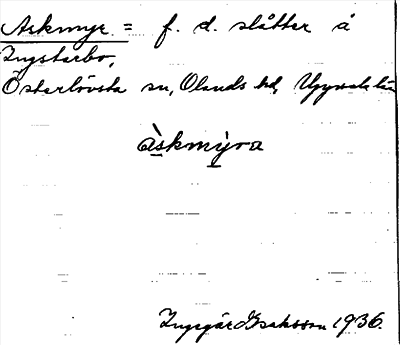 Askmyr = f. d. slåtter å
Ingstarbo,
Österlövsta sn, Olands hd, Uppsala län
àskmỳra
Ingegär Isaksson 1936.